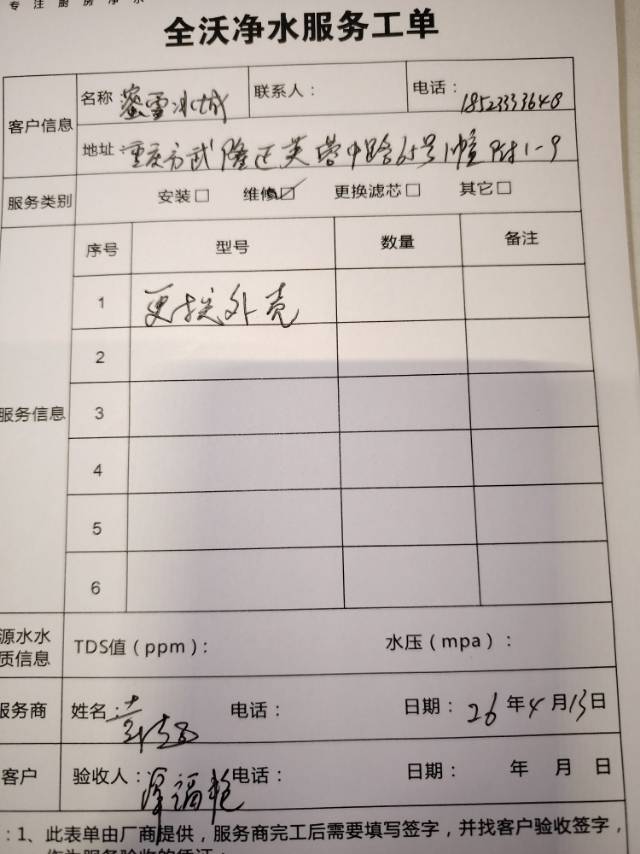 专注厨房净水
全沃净水服务工单
客户信息 名称 蜜雪冰城 联系人： 电话： 18523333648
地址：重庆市武隆区芙蓉中路65号1幢附1-9
服务类别 安装□ 维修☑ 更换滤芯□ 其它□
服务信息 序号 型号 数量 备注
1 更换外壳
2
3
4
5
6
源水水质信息 TDS值（ppm）： 水压（mpa）：
服务商 姓名： 电话： 日期：26年4月13日
客户 验收人： 电话： 日期： 年 月 日
：1、此表单由厂商提供，服务商完工后需要填写签字，并找客户验收签字，
作为服务验收的凭证；